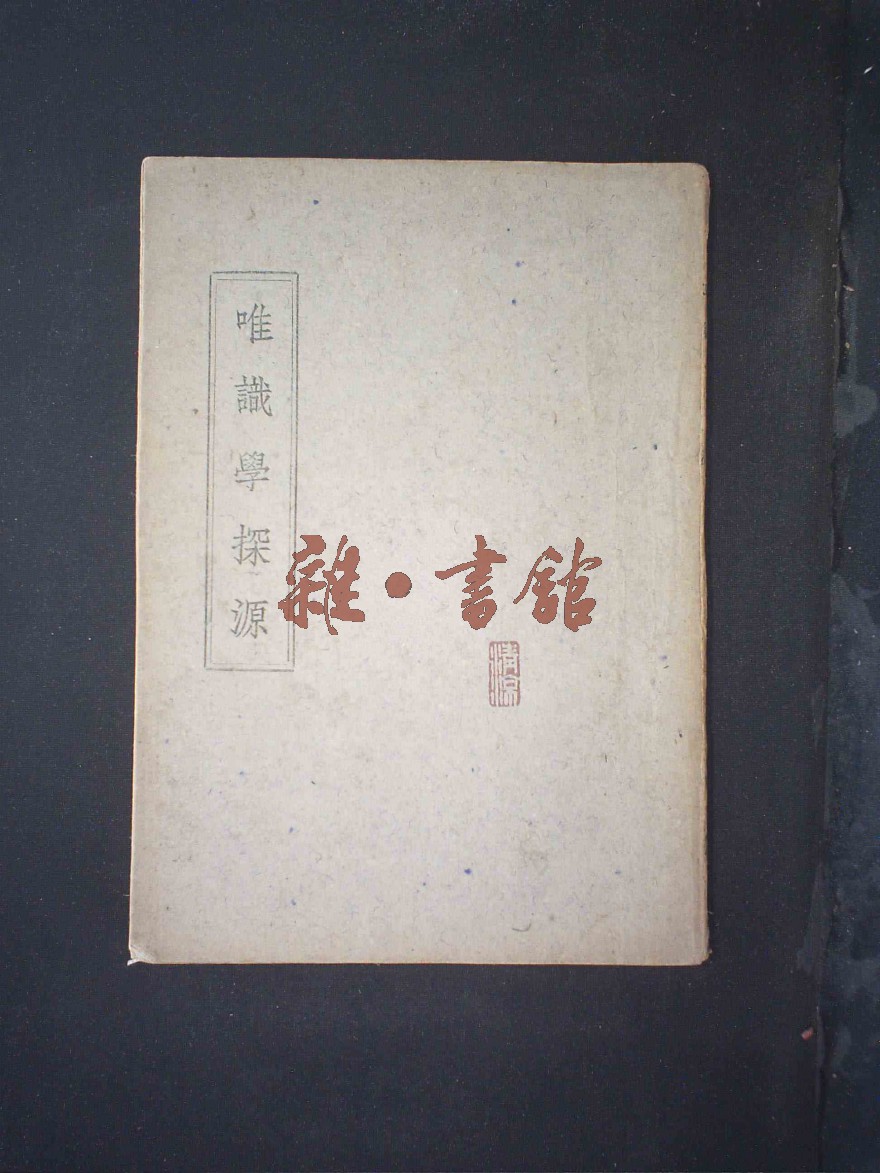 唯識學探源
雜·書館
清涼